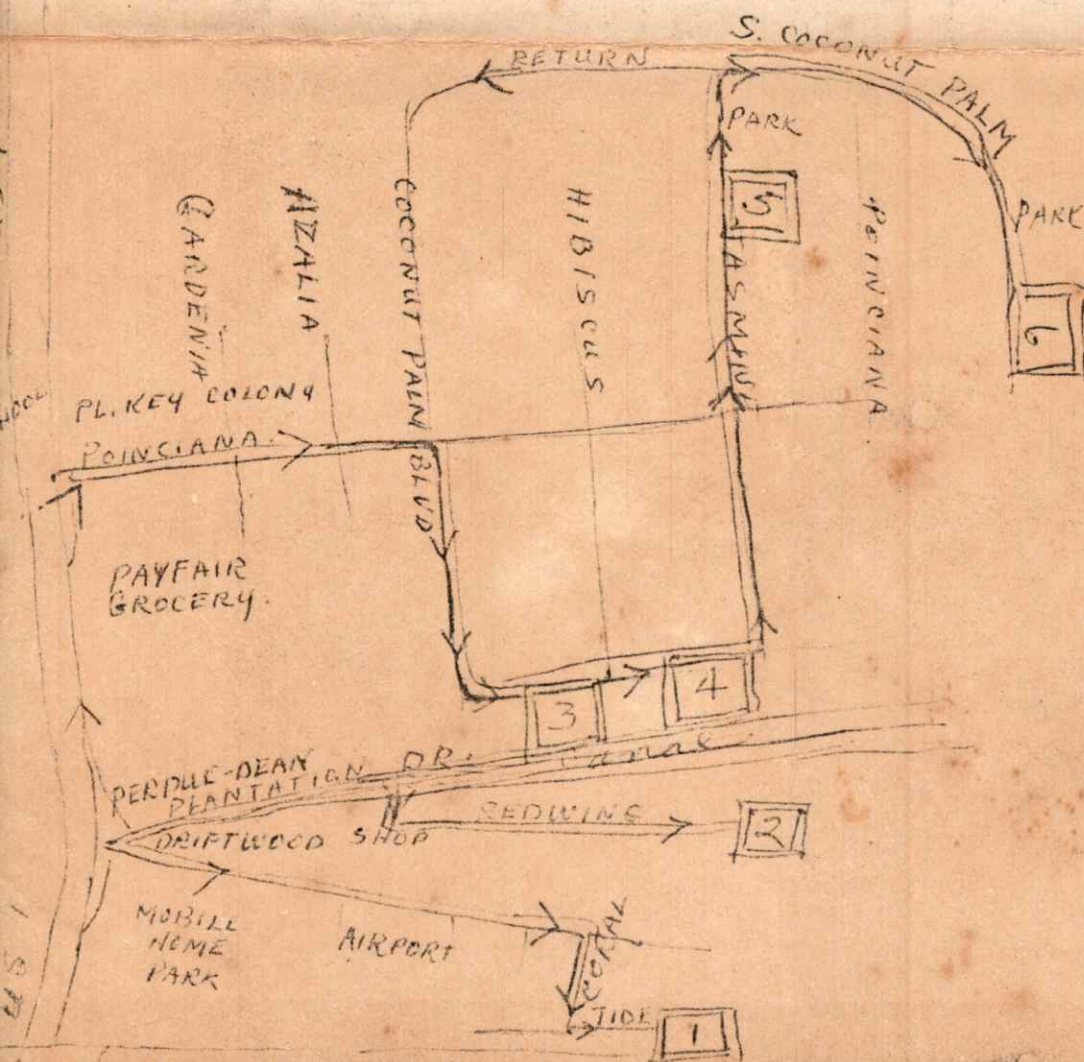 S. COCONUT PALM
RETURN
PARK
5
PARK
6
GARDENIA
AZALIA
COCONUT PALM BLVD
HIBISCUS
JASMINE
POINCIANA
PL. KEY COLONY
POINCIANA.
PAYFAIR
GROCERY.
3
4
PERDUE-DEAN
PLANTATION DR.
Canal
DRIFTWOOD SHOP
REDWING
2
MOBILL
HOME
PARK
AIRPORT
CORAL
TIDE
1
US 1